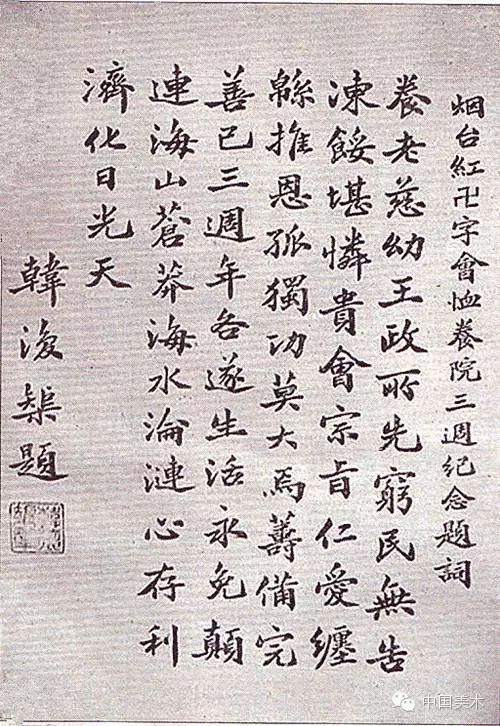 烟台紅卍字會恤養院三週紀念題詞
養老慈幼王政所先窮民無告
凍餒堪憐貴會宗旨仁愛纏
緜推恩孤獨功莫大焉籌備完
善已三週年各遂生活永免顛
連海山蒼莽海水淪漣心存利
濟化日光天
韓復榘題
中国美术